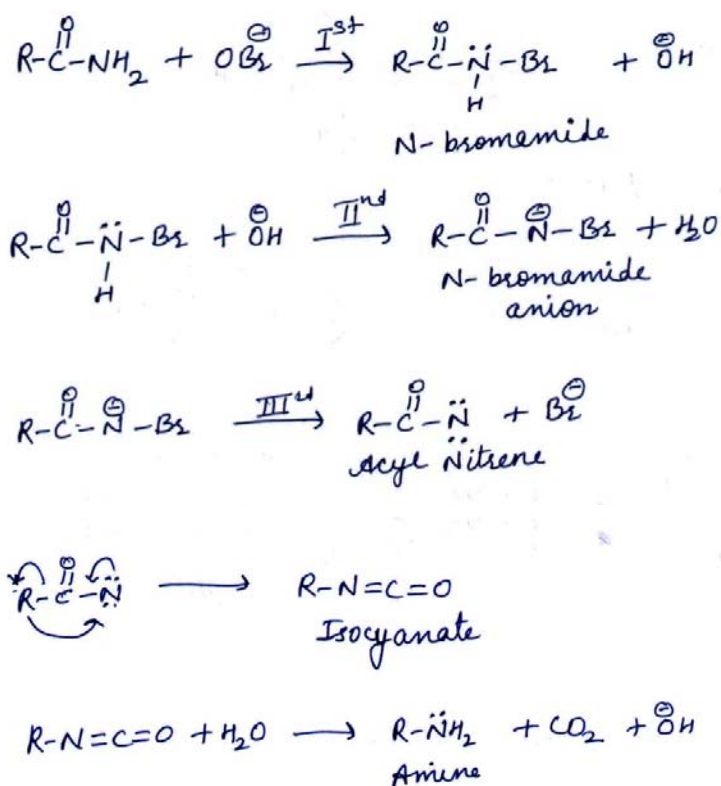 R-C(=O)-NH₂ + OBr⊖ —Iˢᵗ→ R-C(=O)-N̈(H)-Br + ⊖OH
N-bromamide
R-C(=O)-N̈(H)-Br + ⊖OH —IIⁿᵈ→ R-C(=O)-N⊖-Br + H₂O
N-bromamide
anion
R-C(=O)-N⊖-Br —IIIʳᵈ→ R-C(=O)-N̈ + Br⊖
Acyl Nitrene
R-C(=O)-N̈ → R-N=C=O
Isocyanate
R-N=C=O + H₂O → R-N̈H₂ + CO₂ + ⊖OH
Amine